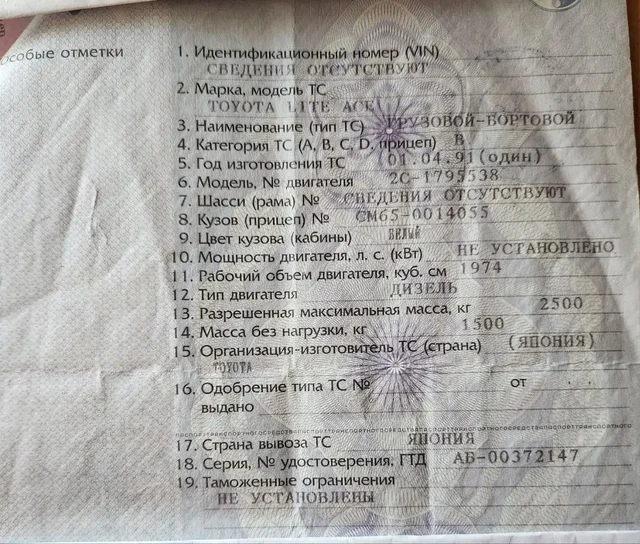 особые отметки
1. Идентификационный номер (VIN)
СВЕДЕНИЯ ОТСУТСТВУЮТ
2. Марка, модель ТС
TOYOTA LITE ACE
3. Наименование (тип ТС) ГРУЗОВОЙ-БОРТОВОЙ
4. Категория ТС (A, B, C, D, прицеп) B
5. Год изготовления ТС 01.04.91(один)
6. Модель, № двигателя 2C-1795538
7. Шасси (рама) № СВЕДЕНИЯ ОТСУТСТВУЮТ
8. Кузов (прицеп) № CM65-0014055
9. Цвет кузова (кабины) БЕЛЫЙ
10. Мощность двигателя, л. с. (кВт) НЕ УСТАНОВЛЕНО
11. Рабочий объем двигателя, куб. см 1974
12. Тип двигателя ДИЗЕЛЬ
13. Разрешенная максимальная масса, кг 2500
14. Масса без нагрузки, кг 1500
15. Организация-изготовитель ТС (страна) (ЯПОНИЯ)
TOYOTA
16. Одобрение типа ТС № от
выдано
17. Страна вывоза ТС ЯПОНИЯ
18. Серия, № удостоверения, ГТД АБ-00372147
19. Таможенные ограничения
НЕ УСТАНОВЛЕНЫ